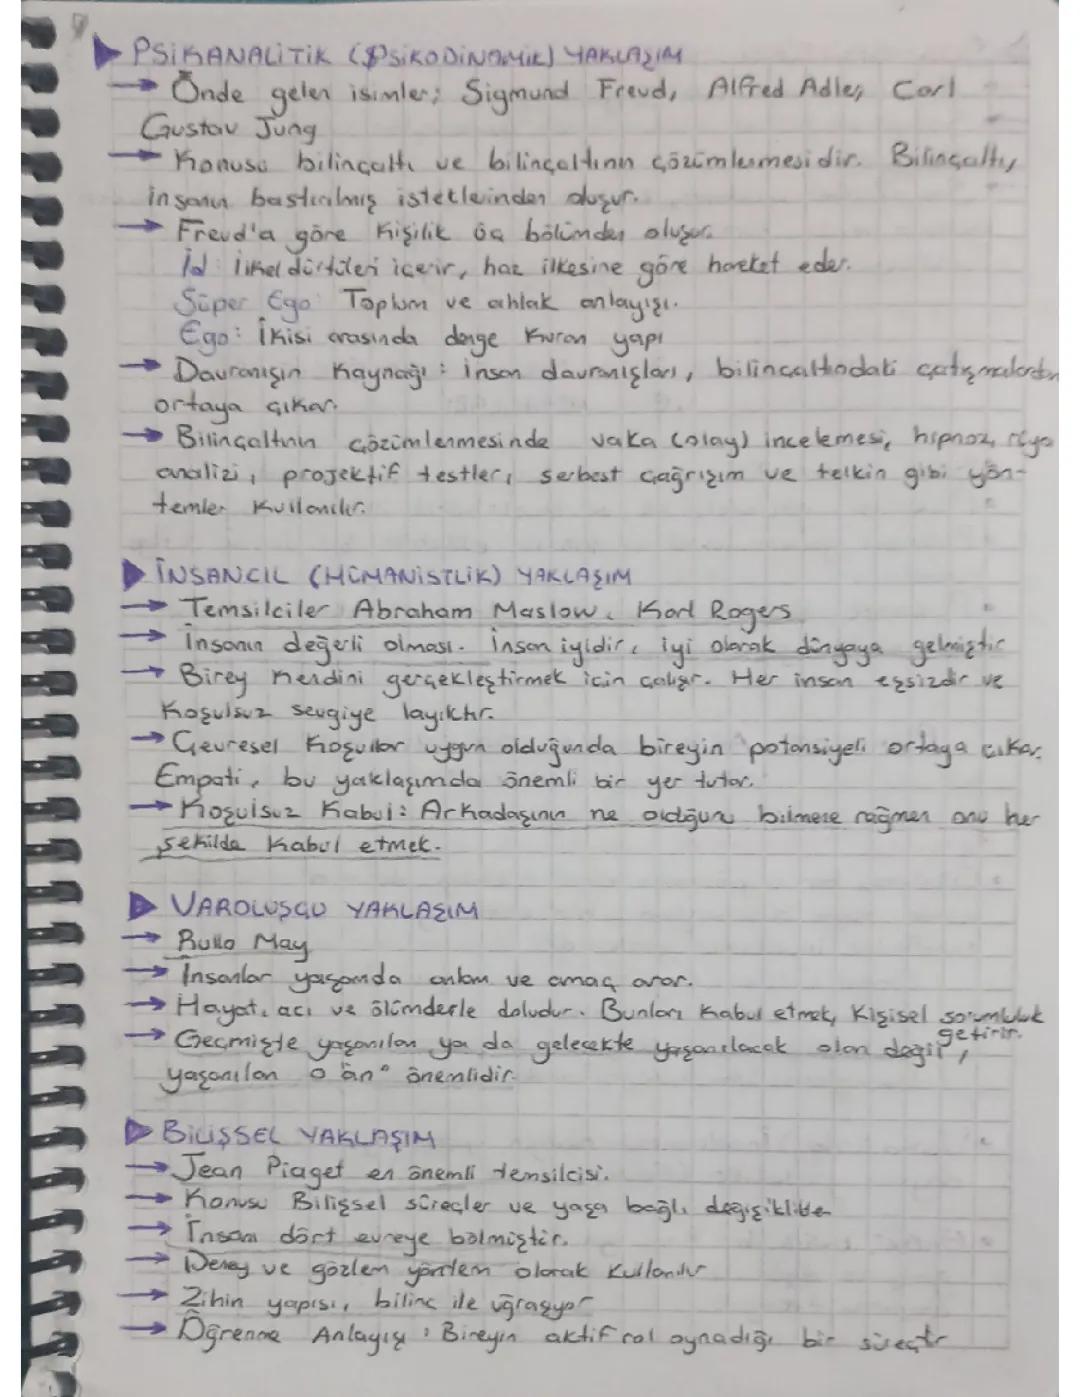 PSİKANALİTİK (PSİKODİNAMİK) YAKLAŞIM
→ Önde gelen isimler; Sigmund Freud, Alfred Adler, Carl
Gustav Jung
→ Konusu bilinçaltı ve bilinçaltının çözümlenmesidir. Bilinçaltı,
insanın bastırılmış isteklerinden oluşur.
→ Freud'a göre kişilik üç bölümden oluşur.
İd: İlkel dürtüleri içerir, haz ilkesine göre hareket eder.
Süper Ego: Toplum ve ahlak anlayışı.
Ego: İkisi arasında denge kuran yapı
→ Davranışın Kaynağı: İnsan davranışları, bilinçaltındaki çatışmalardan
ortaya çıkar.
→ Bilinçaltının çözümlenmesinde vaka (olay) incelemesi, hipnoz, rüya
analizi, projektif testler, serbest çağrışım ve telkin gibi yön-
temler kullanılır.
İNSANCIL (HÜMANİSTLİK) YAKLAŞIM
→ Temsilciler Abraham Maslow, Karl Rogers
→ İnsanın değerli olması. İnsan iyidir, iyi olarak dünyaya gelmiştir
→ Birey kendini gerçekleştirmek için çalışır. Her insan eşsizdir ve
koşulsuz sevgiye layıktır.
→ Çevresel koşullar uygun olduğunda bireyin potansiyeli ortaya çıkar.
Empati, bu yaklaşımda önemli bir yer tutar.
→ Koşulsuz Kabul: Arkadaşının ne olduğunu bilmene rağmen onu her
şekilde kabul etmek.
VAROLUŞÇU YAKLAŞIM
→ Rullo May
→ İnsanlar yaşamda anlam ve amaç arar.
→ Hayat, acı ve ölümlerle doludur. Bunları kabul etmek, kişisel sorumluluk
getirir.
→ Geçmişte yaşanılan ya da gelecekte yaşanılacak olan değil,
yaşanılan o "an" önemlidir.
BİLİŞSEL YAKLAŞIM
→ Jean Piaget en önemli temsilcisi.
→ Konusu Bilişsel süreçler ve yaşa bağlı değişiklikler
→ İnsanı dört evreye bölmüştür.
→ Deney ve gözlem yöntem olarak kullanılır
→ Zihin yapısı, bilinç ile uğraşıyor
→ Öğrenme Anlayışı: Bireyin aktif rol oynadığı bir süreçtir